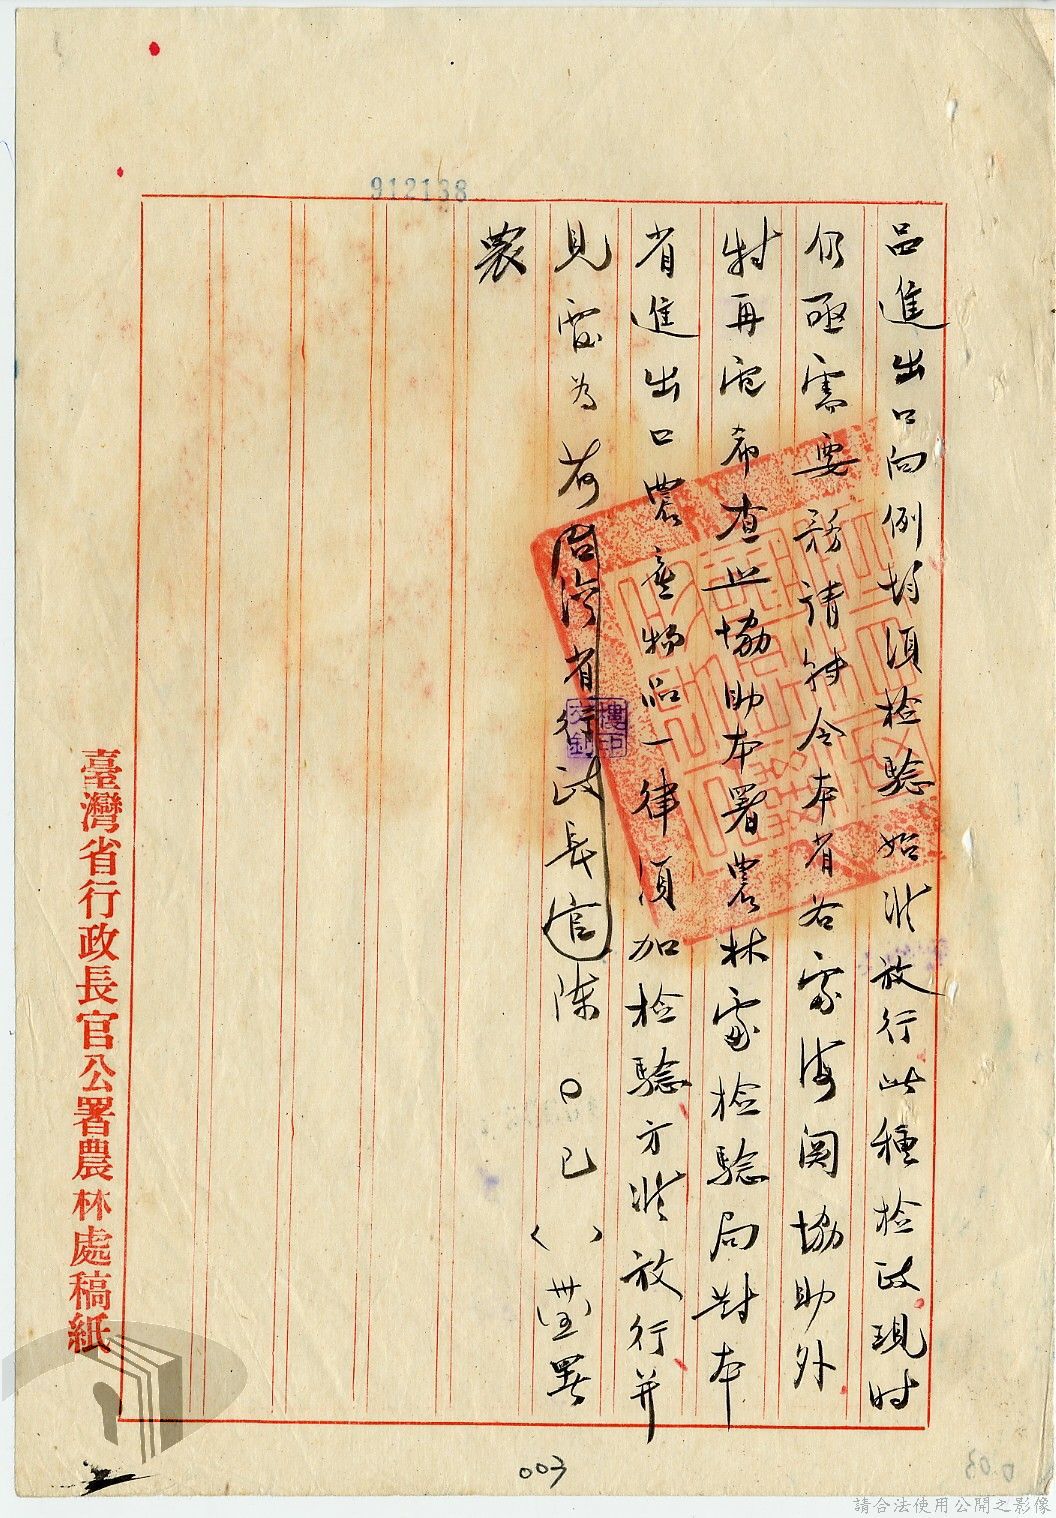 912138
品進出口向例均須檢驗始准放行此種檢政現时
仍亟需要務請轉令本省各處海関協助外
特再電希查照協助本署農林處檢驗局對本
省進出口農產物品一律須加檢驗方准放行并
見電為荷台湾省行政長官陳〇巳( )署
農
臺灣省行政長官公署農林處稿紙
003
請合法使用公開之影像